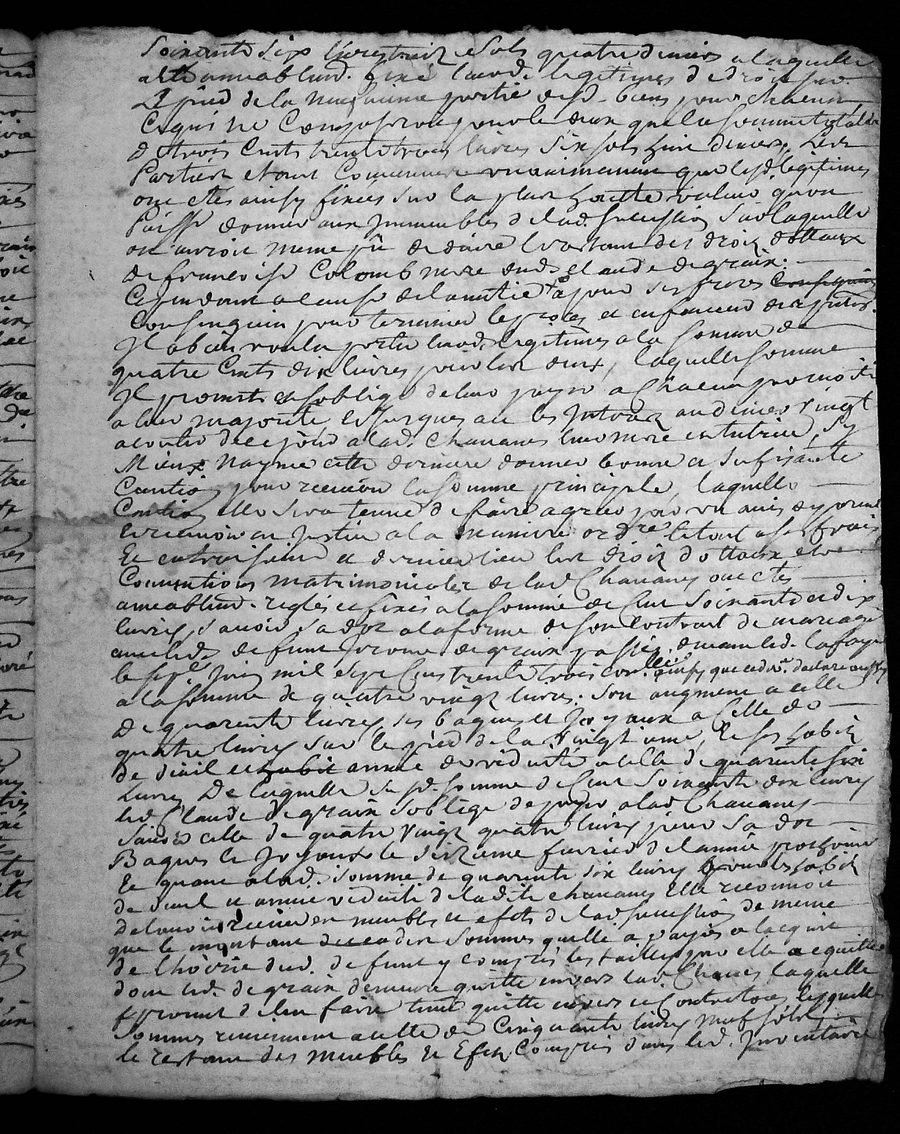 Soixante six livres treize sols quatre deniers a laquelle
a été amiablemt. fixé lesd. legitimes de droit sur
Le pied de la neufvieme portie desd. biens pour chacun
Ce qui ne Composeroit pour les deux que la somme totale
de trois Cents trente trois livres six sols huit deniers, Les
Parties etant Convenues unanimement que lesd. legitimes
ont etes ainsy fixées sur la plus haute valeur qu'on
Puisse donner aux Immeubles de lad. succession sur laquelle
on auroit meme pû deduire le restant des droits dottaux
de françoise Colomb mere dud. Claude degrain.
Cependant a cause de l'amitié qu'il a pour ses freres
Consanguins pour terminer le procés et en faveur des
Il a bien voulu porter lesd. legitimes a la somme de
quatre Cents dix livres pour les deux, laquelle somme
Il promet et s'oblige de leur payer a chacun par moitié
a leur majorité Et jusques alors les Interets au denier vingt
a conter de ce jour a lad. Chavanes leur mere et tutrice, sy
Mieux n'ayme cette derniere donner bonne et sufisante
Caution pour recevoir la somme principale, laquelle
Caution elle sera tenue de faire agreer par un avis de parents
Et recevoir en Justice a la maniere ordre. le tout a ses frais
Et en troisieme et dernier lieu les droits dottaux et
Conventions matrimoniales de lad. Chavanes ont etés
amiablemt. reglés et fixés a la somme de Cent Soixante et dix
livres, savoir sa dot a la forme de son Contrat de mariage
avec led. defunt Jerome degrain passé devant led. Lafaye
le sept Juin mil sept Cents trente trois ainsy que led. me. declare
a la somme de quatre vingt livres. son augment a celle
De quarente livres, ses bagues et Joyaux a Celle de
quatre livres sur le pied de la vingtieme, Et ses habits
de deuil et année de viduité a celle de quarente six
Livres De laquelle susd. somme de Cent Soixante dix livres
led. Claude degrain s'oblige de payer a lad. Chavanes
Savoir celle de quatre vingt quatre livres pour sa dot
Bagues et Joyaux le seizieme fevrier de l'année prochaine
Et quant a lad. somme de quarente six livres pour les habits
de deuil et année viduité de ladite Chavanes Elle reconnoit
de l'avoir reçue en meubles et effets de lad. succession de meme
que le montant de ces autres sommes quelle a payés a l'acquit
De l'hoirie dud. defunt y compris les tailles par elle acquittées
dont led. degrain demeure quitte envers lad. Chavanes laquelle
promet de l'en faire tenir quitte envers et Contre tous, lesquelles
Sommes reviennent a celle de Cinquante livres neuf sols
le restant des meubles et Effets Compris dans led. Inventaire